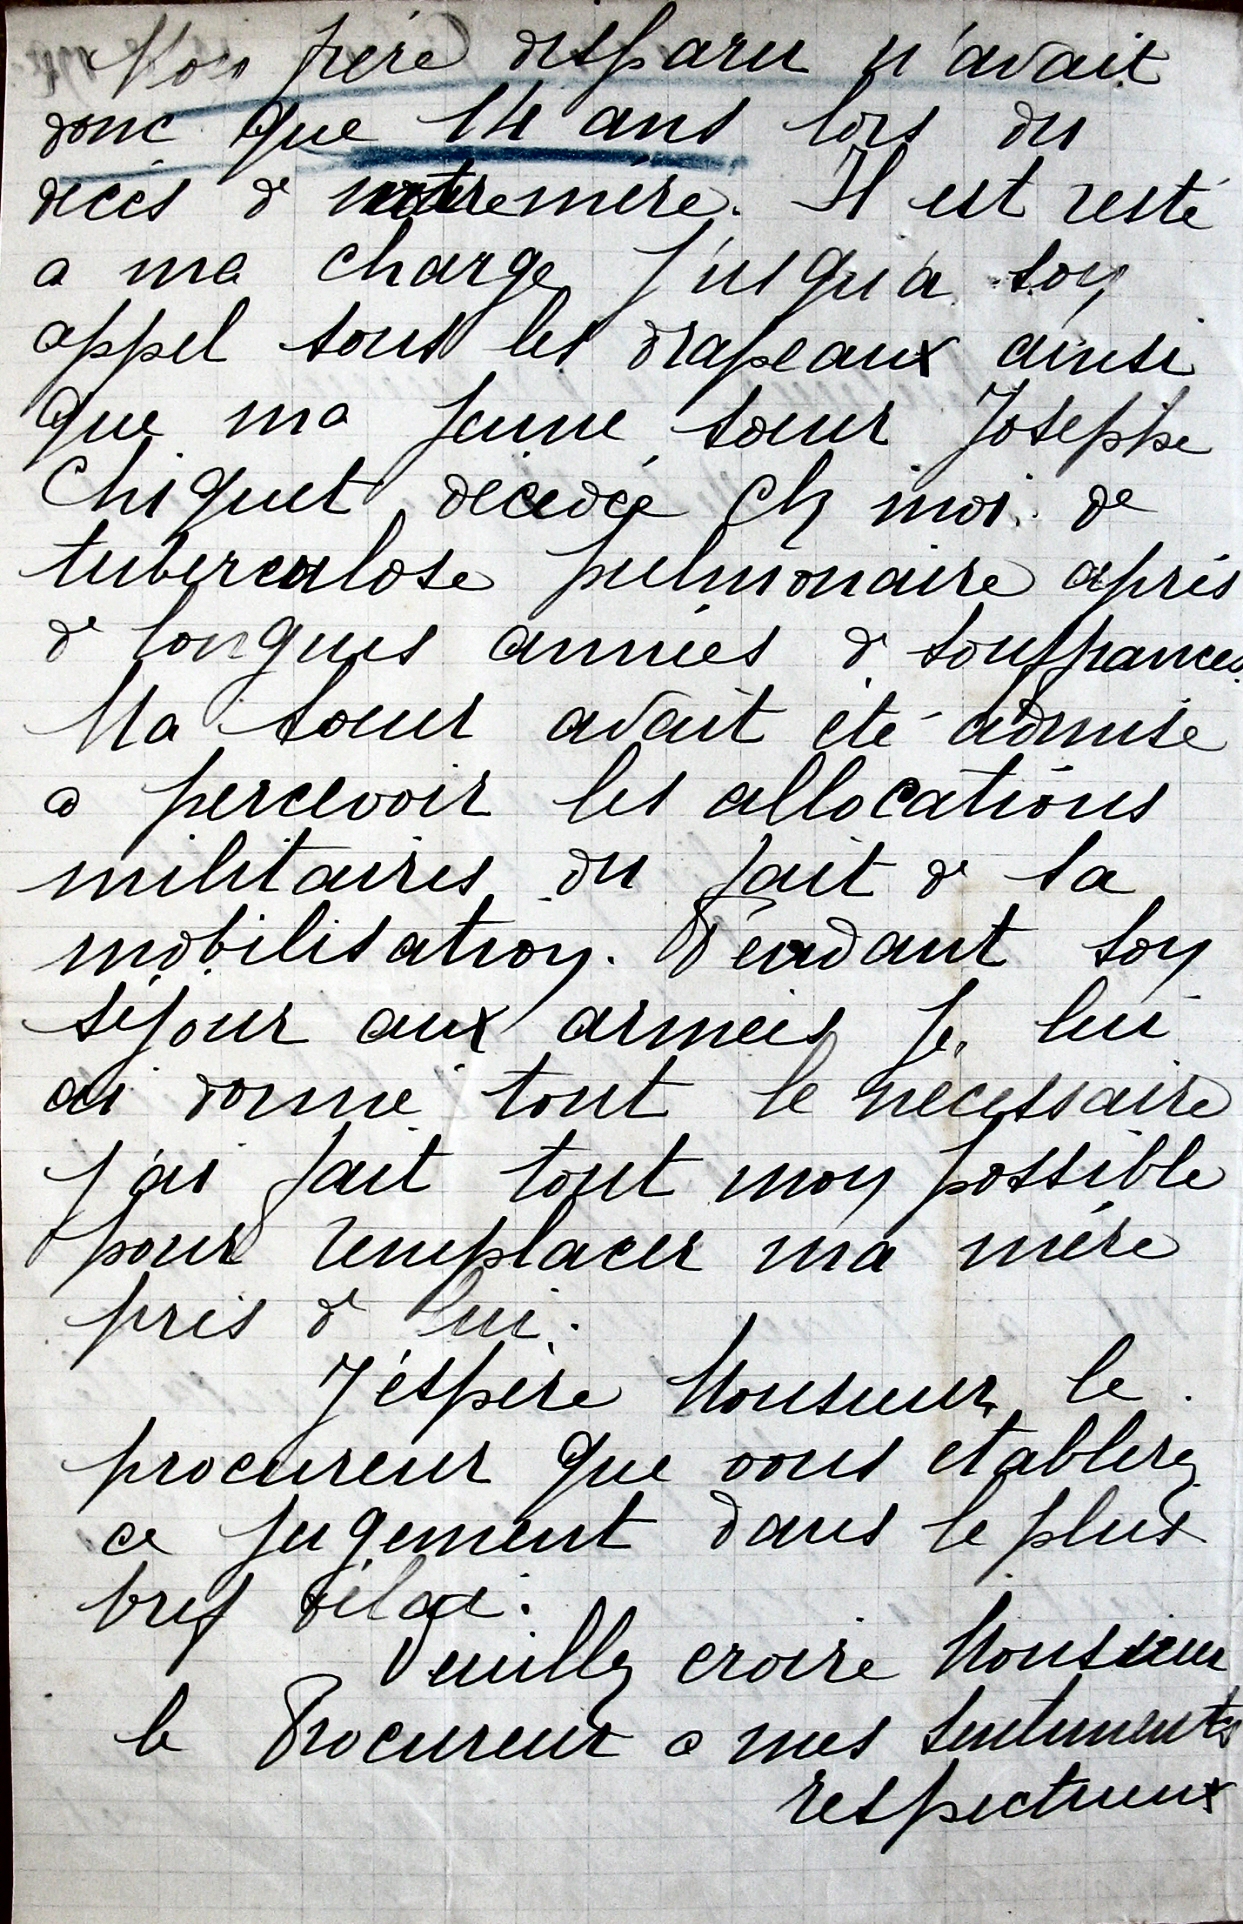 Mon frère disparu n'avait
donc que 14 ans lors du
décès de notre mère. Il est resté
a ma charge jusqu'à son
appel sous les drapeaux ainsi
que ma jeune soeur Josephe
Chiquet décédée chez moi de
tuberculose pulmonaire après
de longues années de souffrances.
Ma soeur avait été admise
a percevoir les allocations
militaires du fait de sa
mobilisation. Pendant son
séjour aux armées je lui
ai donné tout le nécessaire
j'ai fait tout mon possible
pour remplacer ma mère
près de lui.
J'éspère Monsieur le
procureur que vous etablirez
ce jugement dans le plus
bref délai.
Veuillez croire Monsieur
le Procureur a mes sentiments
respectueux